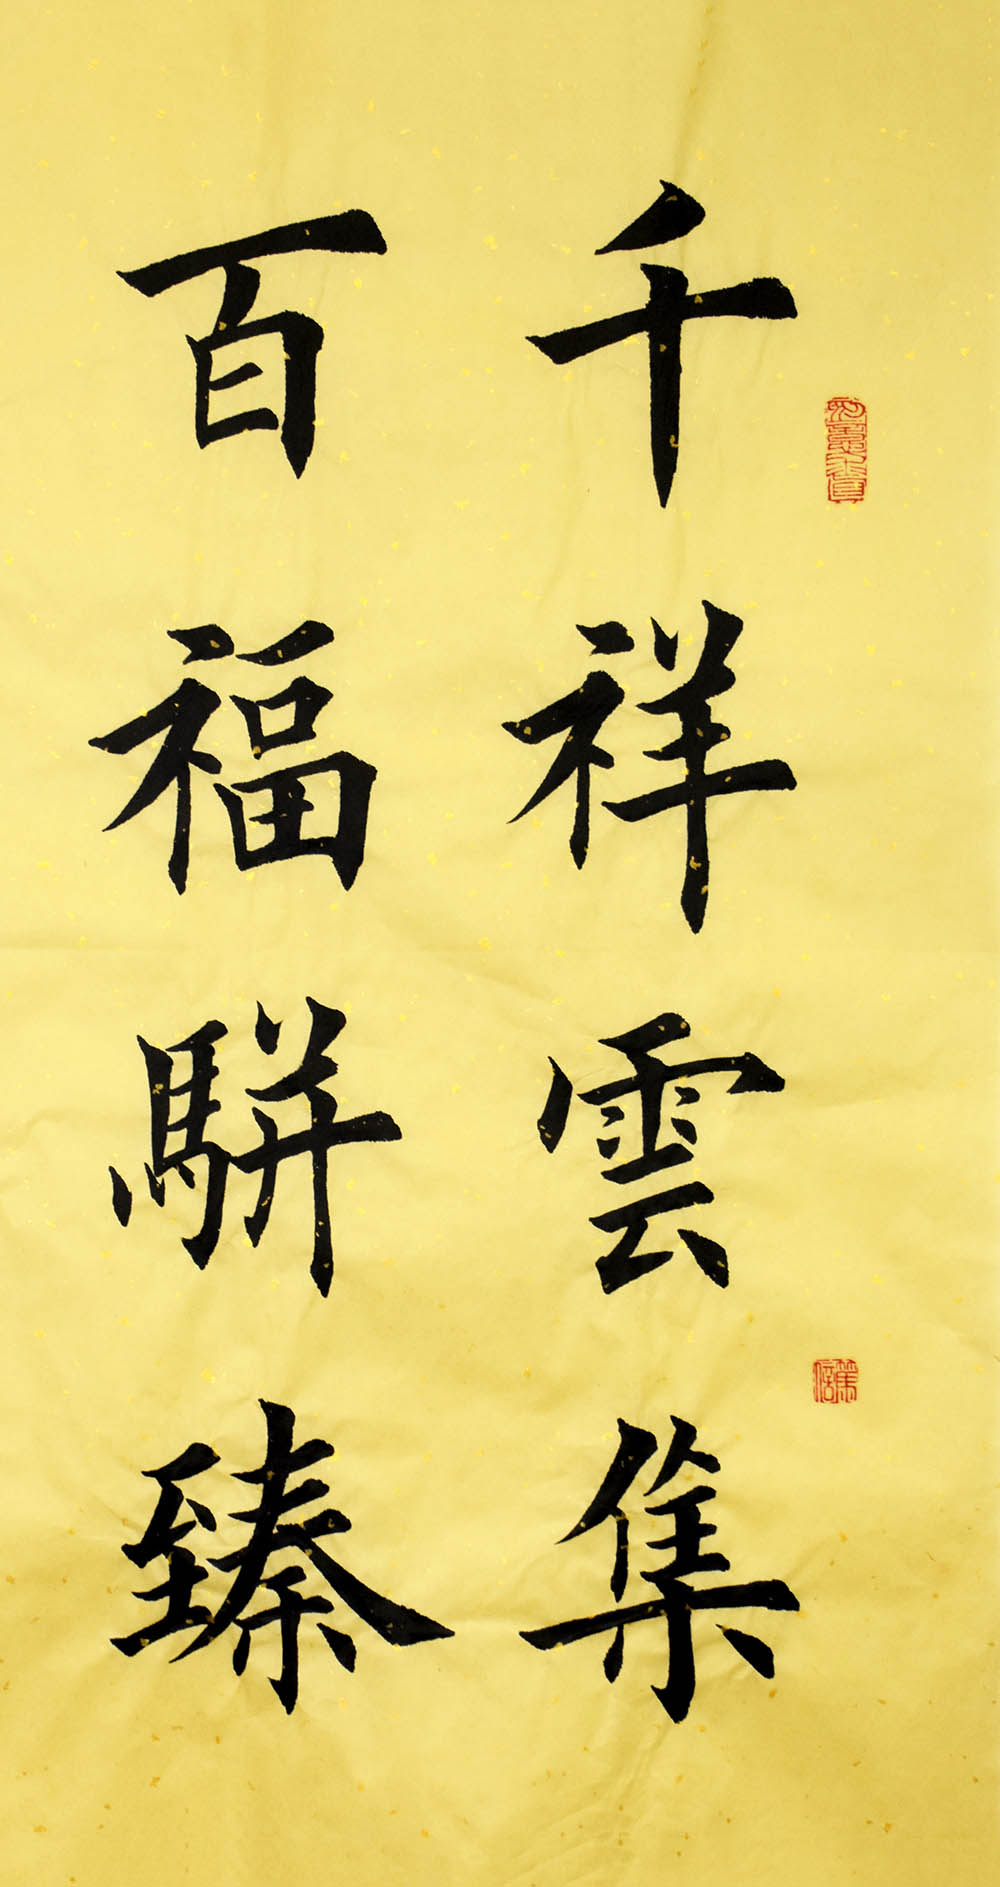 千祥雲集
百福駢臻
篤信